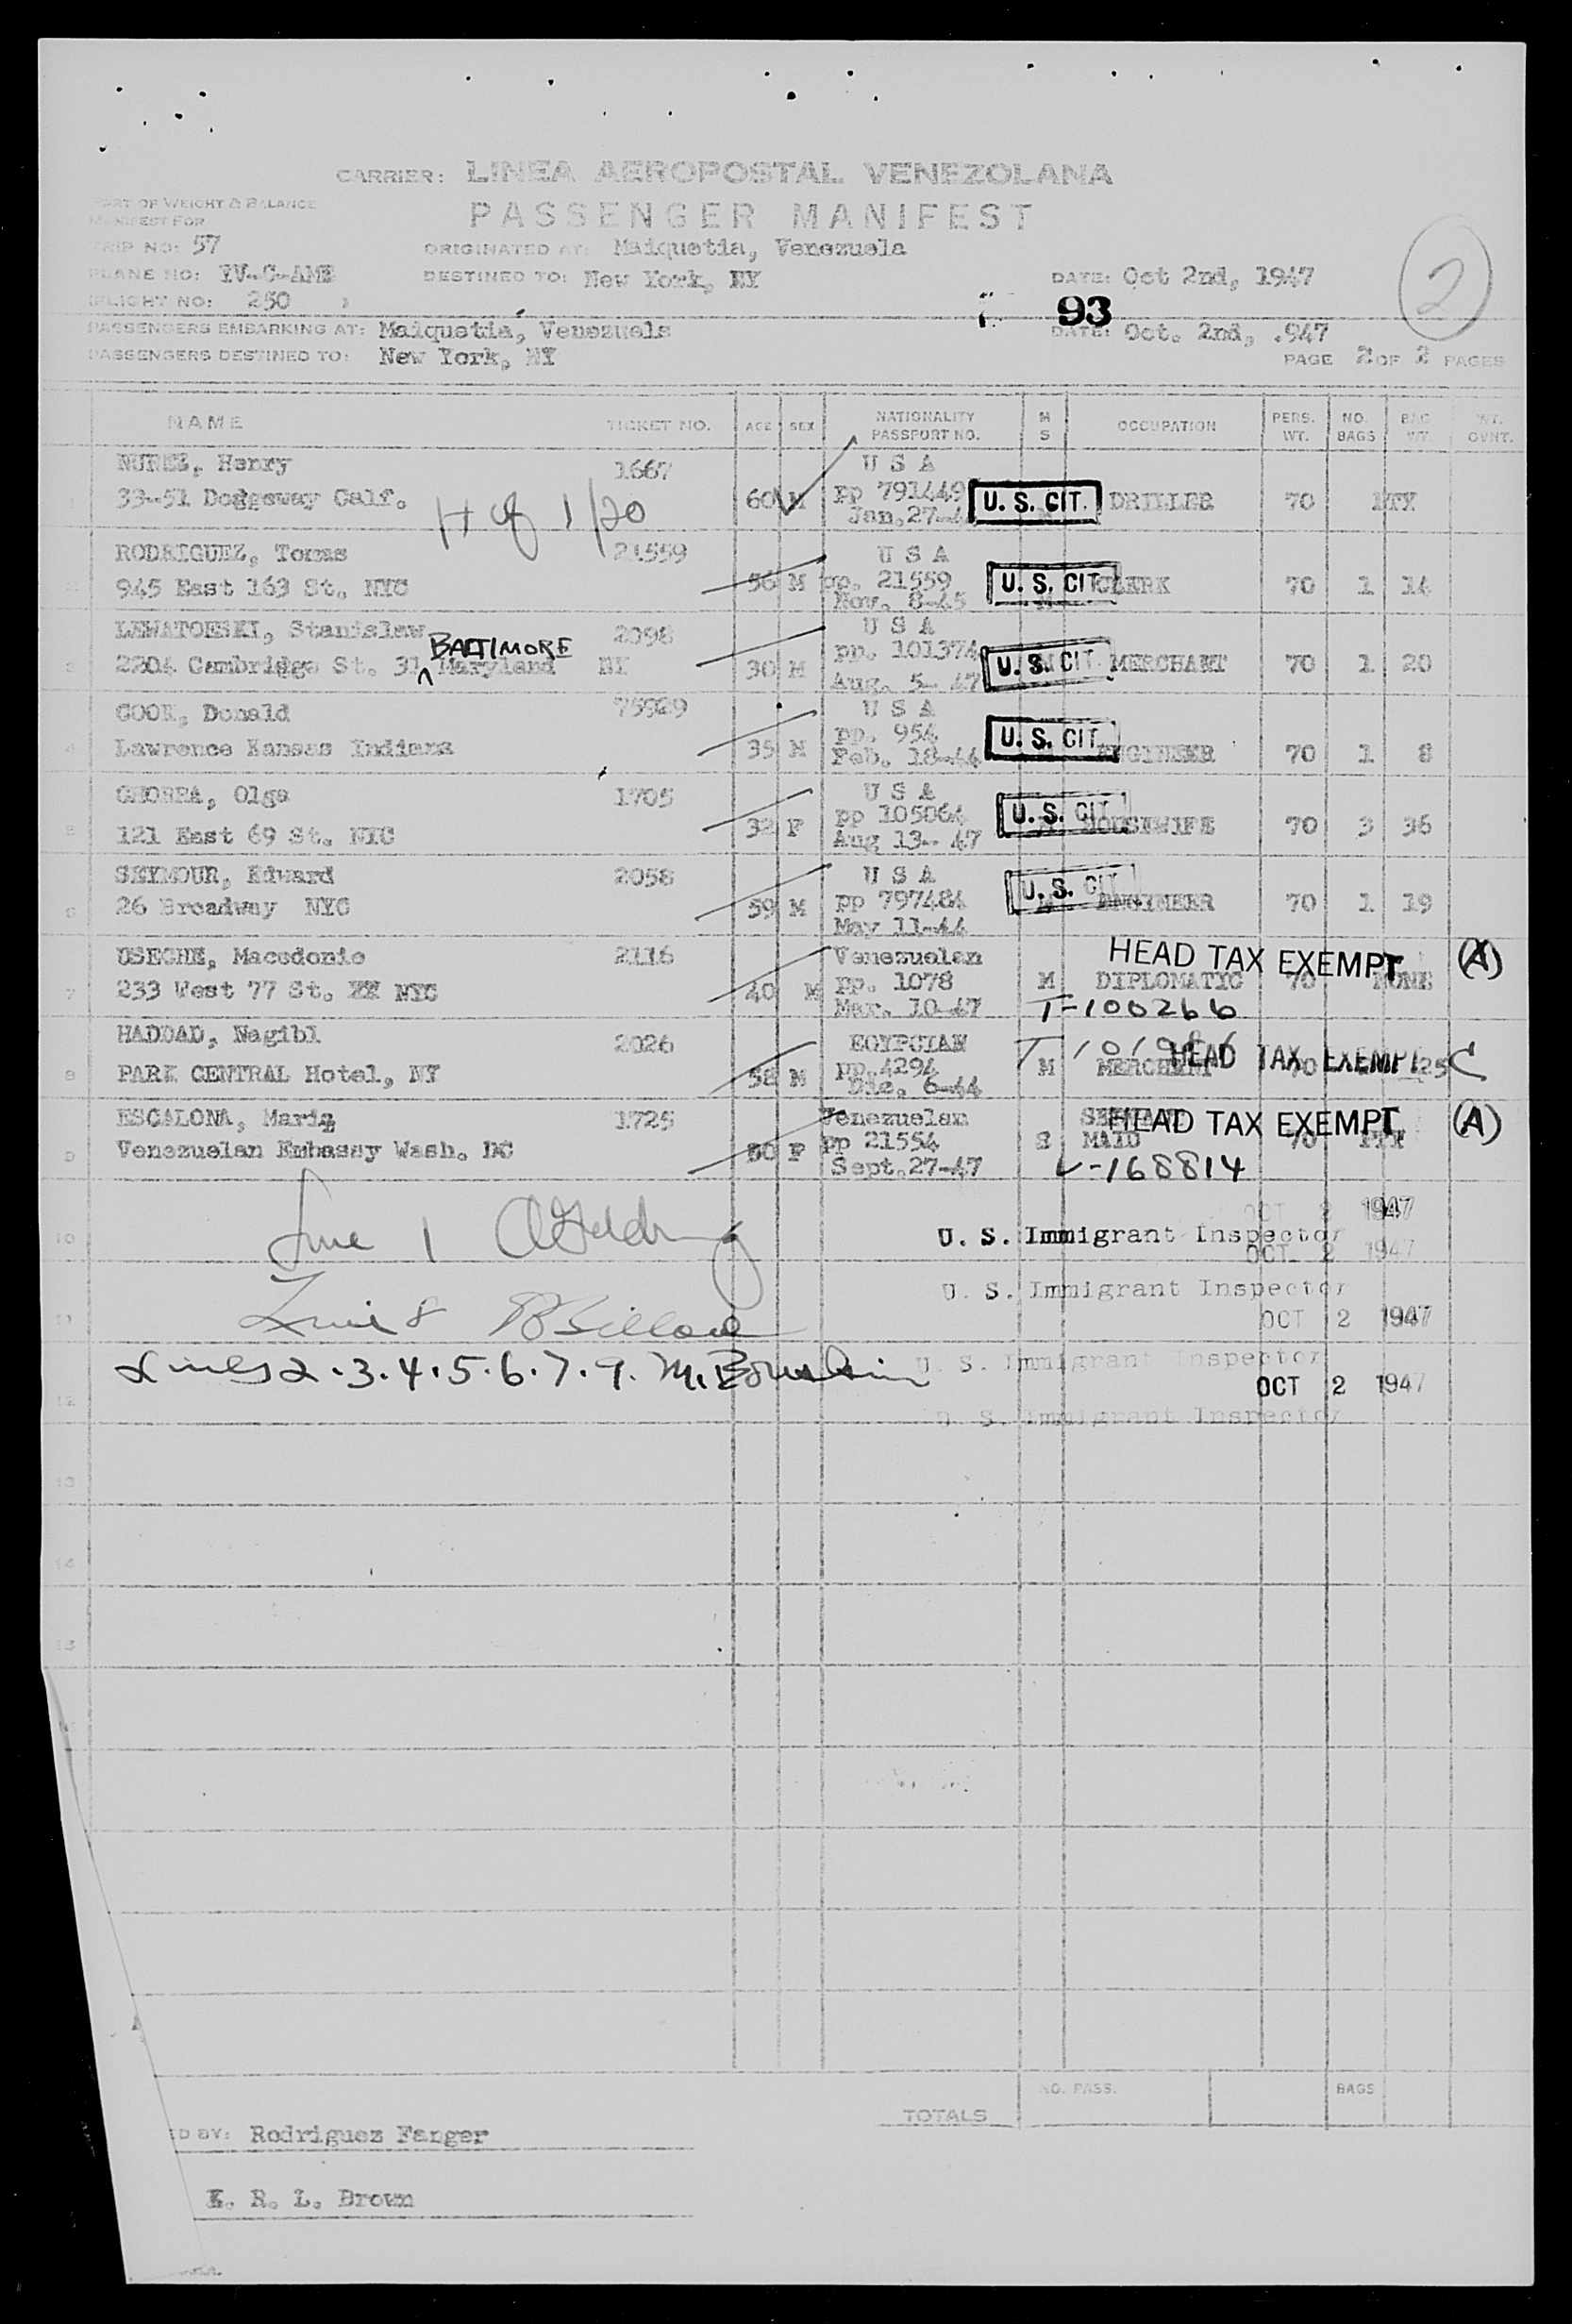 CARRIER: LINEA AEROPOSTAL VENEZOLANA
PART OF WEIGHT & BALANCE
MANIFEST FOR
PASSENGER MANIFEST
TRIP NO: 57
ORIGINATED AT: Maiquetia, Venezuela
PLANE NO: YV-C-AME
DESTINED TO: New York, NY
DATE: Oct 2nd, 1947
2
FLIGHT NO: 250
93
PASSENGERS EMBARKING AT: Maiquetia, Venezuela
DATE: Oct. 2nd, .947
PASSENGERS DESTINED TO: New York, NY
PAGE 2 OF 2 PAGES
NAME TICKET NO. AGE SEX NATIONALITY PASSPORT NO. M S OCCUPATION PERS. WT. NO. BAGS BAG WT. WT. OVHT.
NUNEZ, Henry 1667 U S A
33-51 Dodgsway Calf. 60 M pp 791449 U. S. CIT. DRILLER 70 PTY
H of 1/20 Jan.27-4
RODRIGUEZ, Tomas 21559 U S A
945 East 163 St. NYC 56 M pp. 21559 U. S. CIT CLERK 70 1 14
Nov. 8-45
LEWATOESKI, Stanislaw 2098 U S A
BALTIMORE
2204 Cambridge St. 31 Maryland NY 30 M pp. 101374 U. S. CIT. MERCHANT 70 1 20
Aug. 5- 47
COOK, Donald 75929 U S A
Lawrence Kansas Indiana 35 M pp. 954 U. S. CIT. ENGINEER 70 1 8
Feb. 18-44
CHOREA, Olga 1705 U S A
121 East 69 St. NYC 32 F pp 105064 U. S. CIT HOUSEWIFE 70 3 36
Aug 13- 47
SEYMOUR, Edward 2058 U S A
26 Broadway NYC 59 M pp 797484 U. S. CIT ENGINEER 70 1 19
May 11-44
USECHE, Macedonio 2116 Venezuelan HEAD TAX EXEMPT (A)
233 West 77 St. NYC 40 M pp. 1078 M DIPLOMATIC 70 NONE
Mar. 10-47 T-100266
HADDAD, Nagibl 2026 EGYPCIAN HEAD TAX EXEMPT C
PARK CENTRAL Hotel, NY 58 M pp.4294 M MERCHANT 70 25
Dic. 6-44
ESCALONA, Maria 1725 Venezuelan HEAD TAX EXEMPT (A)
Venezuelan Embassy Wash. DC 50 F pp 21554 S MAID 70 PTY
Sept.27-47 V-168814
OCT 2 1947
Line 1 U. S. Immigrant Inspector
OCT 2 1947
U. S. Immigrant Inspector
Line 8 OCT 2 1947
Lines 2.3.4.5.6.7.9. M. U. S. Immigrant Inspector
OCT 2 1947
U. S. Immigrant Inspector
NO. PASS. BAGS
TOTALS
ED BY: Rodriguez Fanger
K. R. L. Brown